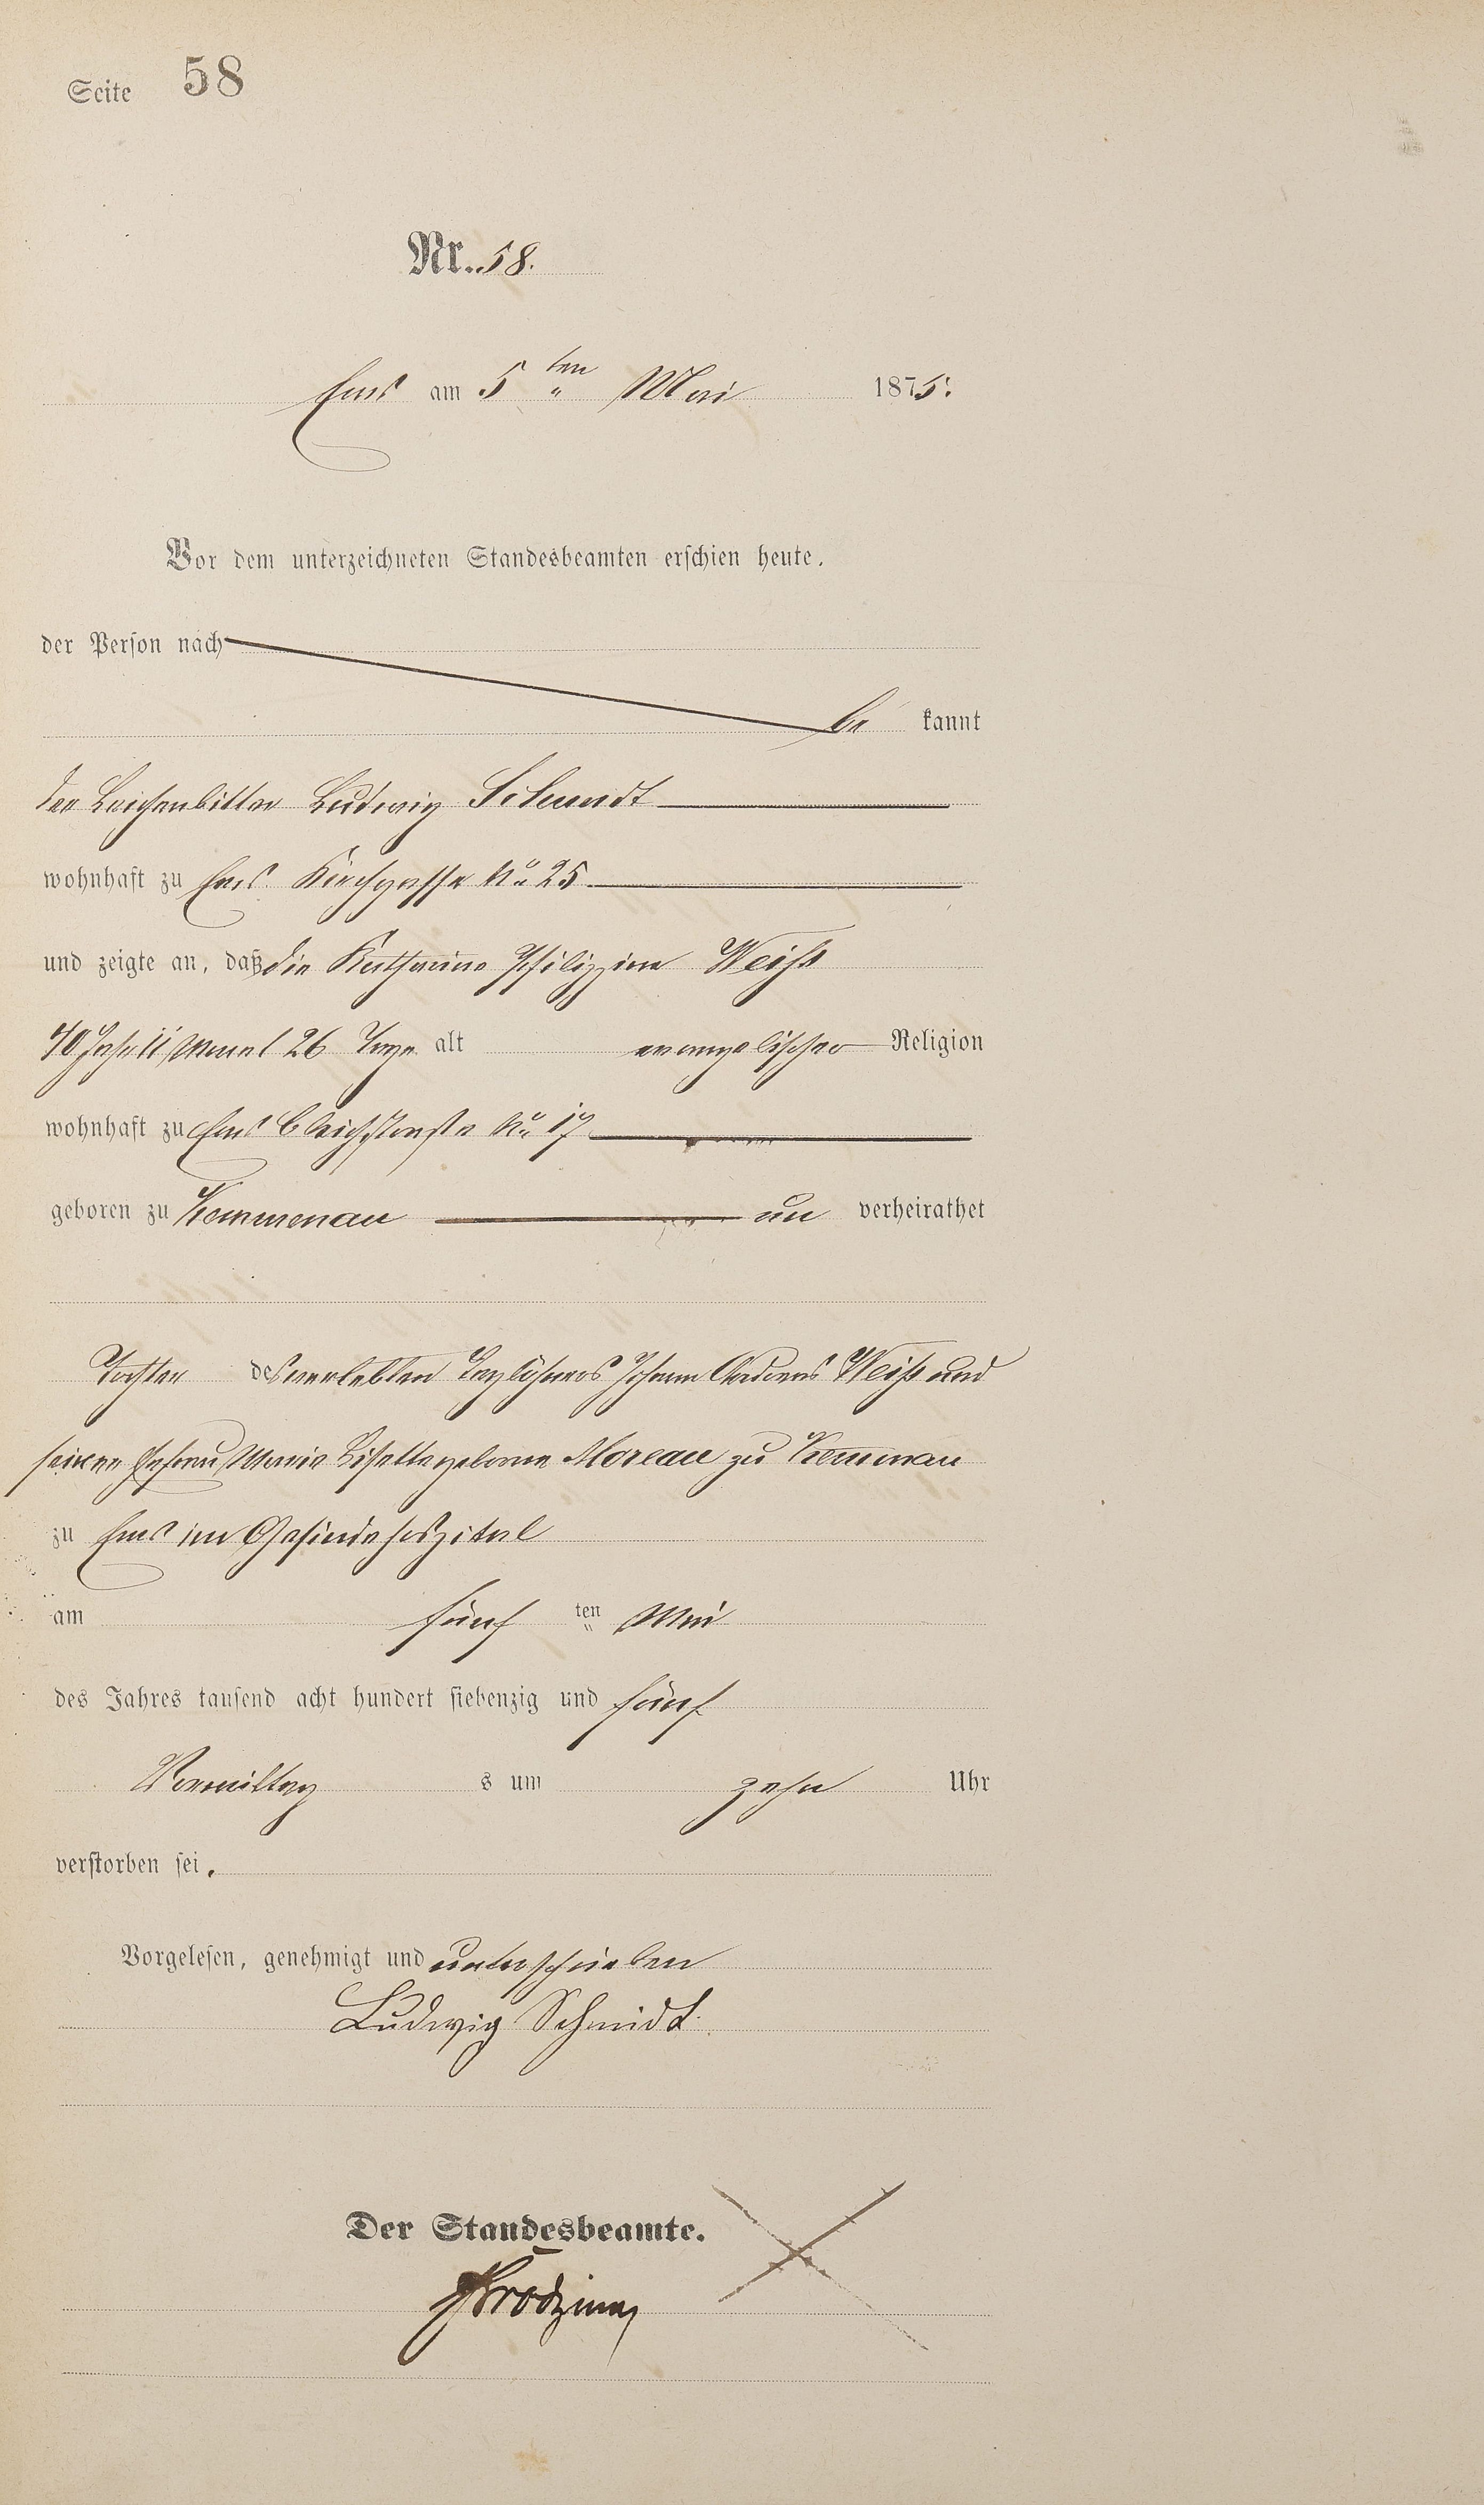 Seite 58
Nr. 58.
Ems am 5 ten Mai 1875.
Vor dem unterzeichneten Standesbeamten erschien heute,
der Person nach
be kannt
der Leichenbitter Ludwig Schmidt
wohnhaft zu Ems Kirchgasse No 25
und zeigte an, daß die Katharine Philippine Weiß
40 Jahr 11 Monat 26 Tage alt evangelischer Religion
wohnhaft zu Ems Bleichstraße No 17
geboren zu Kemmenau un verheirathet
Tochter des verlebten Taglöhners Johann Andreas Weiß und
seiner Ehefrau Marie Lisette geborne Moreau zu Kemmenau
zu Ems im Gesindehospital
am fünf ten Mai
des Jahres tausend acht hundert siebenzig und fünf
Vormittag s um zehn Uhr
verstorben sei.
Vorgelesen, genehmigt und unterschrieben
Ludwig Schmidt
Der Standesbeamte.